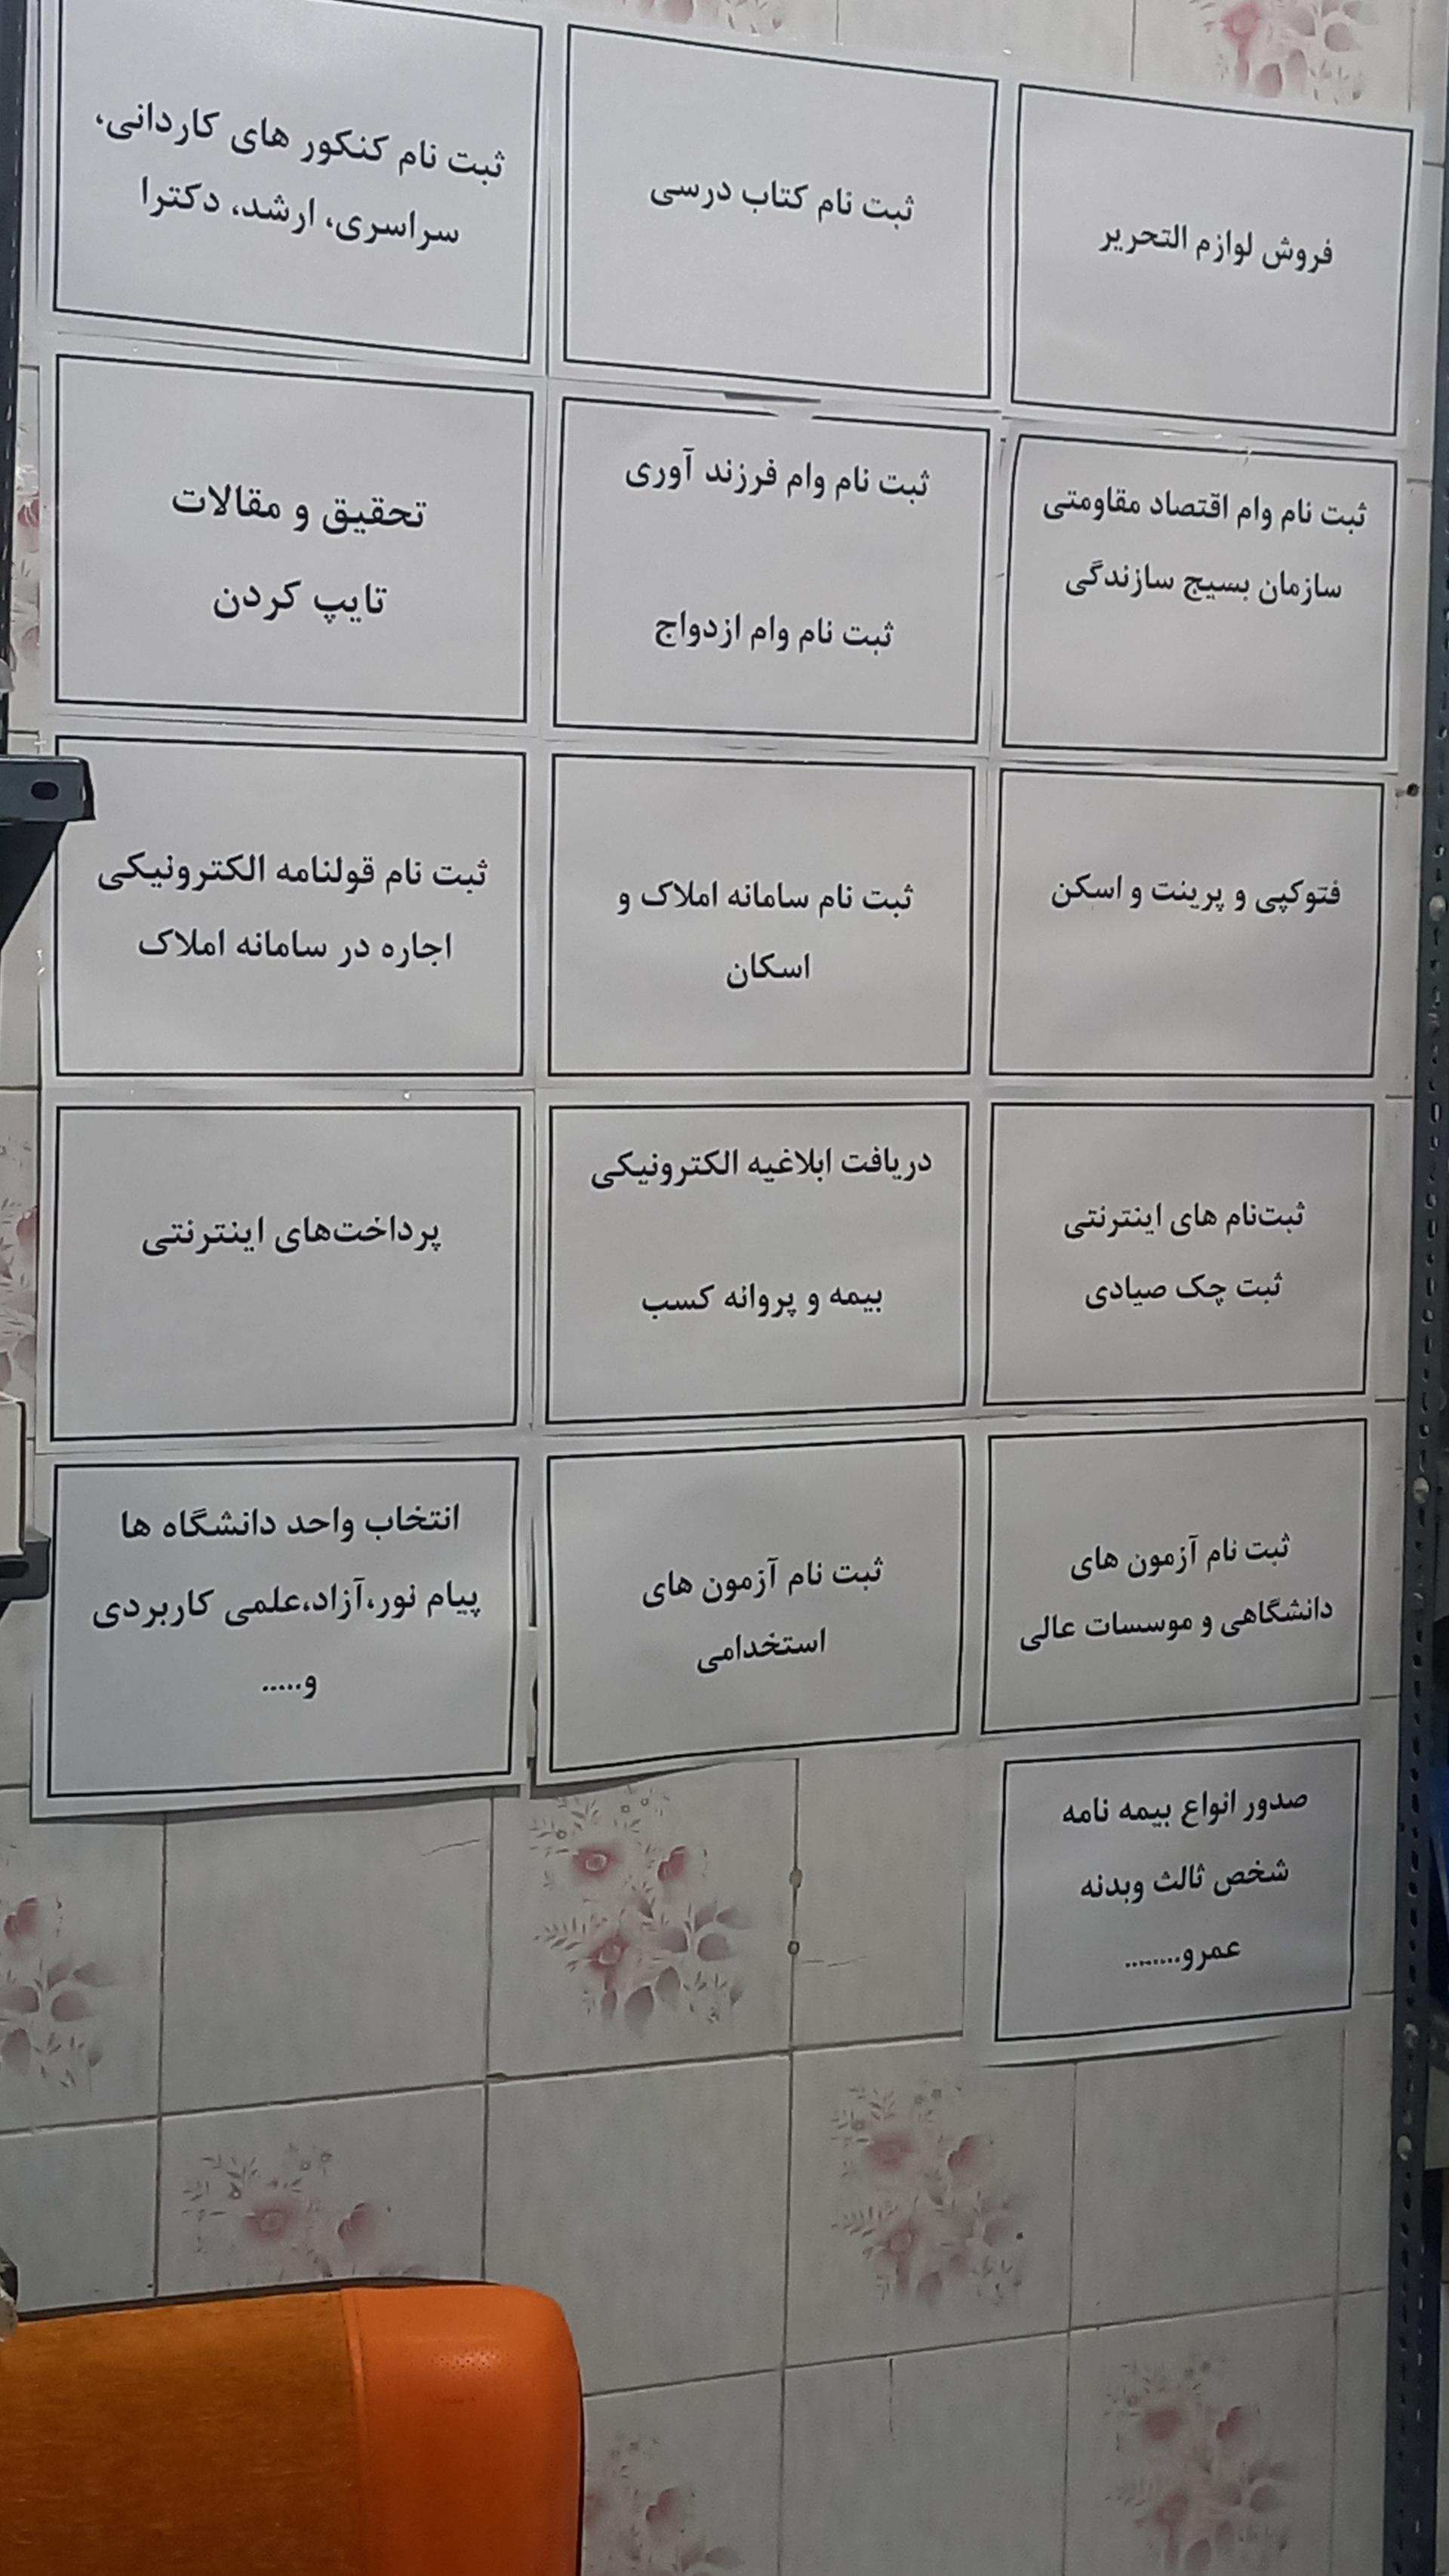 فروش لوازم التحریر
ثبت نام کتاب درسی
ثبت نام کنکور های کاردانی،
سراسری، ارشد، دکترا
ثبت نام وام اقتصاد مقاومتی
سازمان بسیج سازندگی
ثبت نام وام فرزند آوری
ثبت نام وام ازدواج
تحقیق و مقالات
تایپ کردن
فتوکپی و پرینت و اسکن
ثبت نام سامانه املاک و
اسکان
ثبت نام قولنامه الکترونیکی
اجاره در سامانه املاک
ثبت‌نام های اینترنتی
ثبت چک صیادی
دریافت ابلاغیه الکترونیکی
بیمه و پروانه کسب
پرداخت‌های اینترنتی
ثبت نام آزمون های
دانشگاهی و موسسات عالی
ثبت نام آزمون های
استخدامی
انتخاب واحد دانشگاه ها
پیام نور،آزاد،علمی کاربردی
و.....
صدور انواع بیمه نامه
شخص ثالث وبدنه
عمرو........